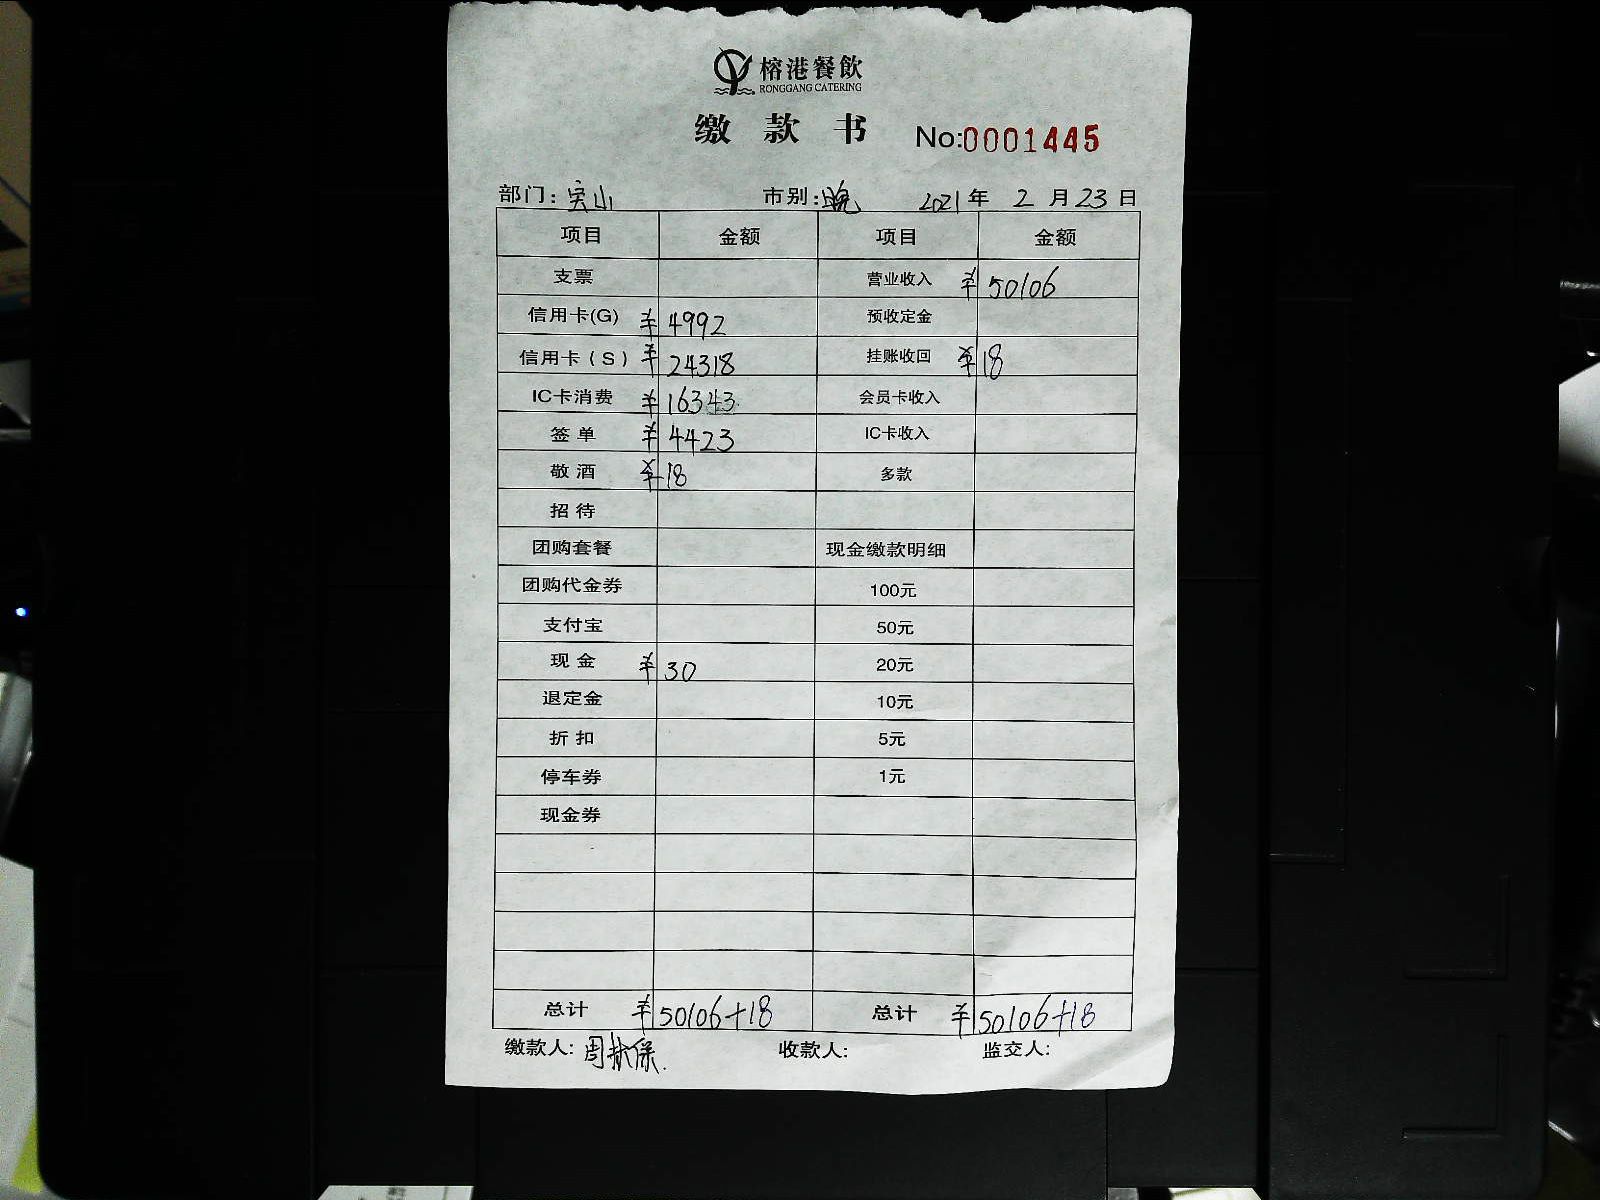 榕港餐飲
RONGGANG CATERING
缴款书 No:0001445
部门:宝山 市别:晚 2021年 2月23日
项目 金额 项目 金额
支票 营业收入 ¥50106
信用卡(G) ¥4992 预收定金
信用卡(S) ¥24318 挂账收回 ¥18
IC卡消费 ¥16343 会员卡收入
签单 ¥4423 IC卡收入
敬酒 ¥18 多款
招待
团购套餐 现金缴款明细
团购代金券 100元
支付宝 50元
现金 ¥30 20元
退定金 10元
折扣 5元
停车券 1元
现金券
总计 ¥50106+18 总计 ¥50106+18
缴款人:周 收款人: 监交人: